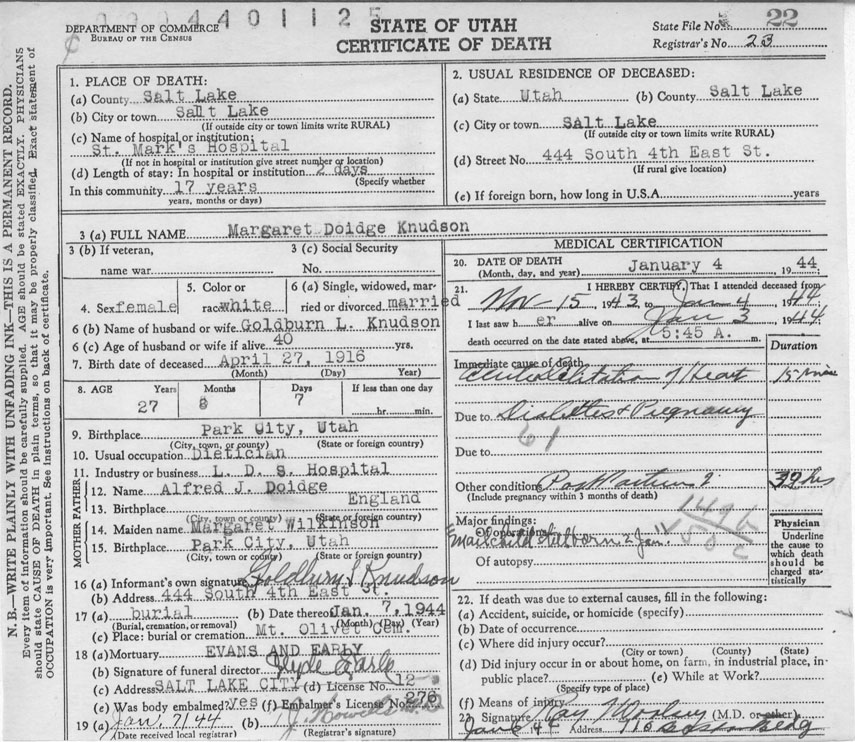 0004401125
DEPARTMENT OF COMMERCE
BUREAU OF THE CENSUS
STATE OF UTAH
CERTIFICATE OF DEATH
State File No. 22
Registrar's No. 23
N. B.—WRITE PLAINLY WITH UNFADING INK—THIS IS A PERMANENT RECORD.
Every item of information should be carefully supplied. AGE should be stated EXACTLY. PHYSICIANS
should state CAUSE OF DEATH in plain terms, so that it may be properly classified. Exact statement of
OCCUPATION is very important. See instructions on back of certificate.
1. PLACE OF DEATH:
(a) County Salt Lake
(b) City or town Salt Lake
(If outside city or town limits write RURAL)
(c) Name of hospital or institution:
St. Mark's Hospital
(If not in hospital or institution give street number or location)
(d) Length of stay: In hospital or institution 2 days
(Specify whether
In this community 17 years
years, months or days)
2. USUAL RESIDENCE OF DECEASED:
(a) State Utah (b) County Salt Lake
(c) City or town Salt Lake
(If outside city or town limits write RURAL)
(d) Street No. 444 South 4th East St.
(If rural give location)
(e) If foreign born, how long in U.S.A. years
3 (a) FULL NAME Margaret Doidge Knudson
3 (b) If veteran,
name war
3 (c) Social Security
No.
4. Sex female
5. Color or
race white
6 (a) Single, widowed, mar-
ried or divorced married
6 (b) Name of husband or wife Goldburn L. Knudson
6 (c) Age of husband or wife if alive 40 yrs.
7. Birth date of deceased April 27, 1916
(Month) (Day) Year)
8. AGE Years Months Days If less than one day
27 8 7 hr. min.
9. Birthplace Park City, Utah
(City, town, or county) (State or foreign country)
10. Usual occupation Dietician
11. Industry or business L. D. S. Hospital
FATHER
12. Name Alfred J. Doidge
13. Birthplace England
(City, town or county) (State or foreign country)
MOTHER
14. Maiden name Margaret Wilkinson
15. Birthplace Park City, Utah
(City, town or county) (State or foreign country)
16 (a) Informant's own signature Goldburn L Knudson
(b) Address 444 South 4th East St.
17 (a) burial (b) Date thereof Jan. 7, 1944
(Burial, cremation, or removal) (Month) (Day) (Year)
(c) Place: burial or cremation Mt. Olivet Cem.
18 (a) Mortuary EVANS AND EARLY
(b) Signature of funeral director Clyde Early
(c) Address SALT LAKE CITY (d) License No. 12
(e) Was body embalmed? yes (f) Embalmer's License No. 276
19 (a) Jan. 7/44 (b)
(Date received local registrar) (Registrar's signature)
MEDICAL CERTIFICATION
20. DATE OF DEATH
(Month, day, and year) January 4 , 1944
21. I HEREBY CERTIFY, That I attended deceased from
Nov 15, 1943 to Jan 4, 1944
I last saw h er alive on Jan 3, 1944
death occurred on the date stated above, at 5:45 A. m.
Duration
Immediate cause of death
Acute Dilitation of Heart 15 min
Due to Diabetes & Pregnancy
61
Due to
Other conditions Post Partum 2 32 hrs
(Include pregnancy within 3 months of death)
Major findings:
Of operations
Male child stillborn 2 Jan.
Of autopsy
Physician
Underline
the cause to
which death
should be
charged sta-
tistically
22. If death was due to external causes, fill in the following:
(a) Accident, suicide, or homicide (specify)
(b) Date of occurrence
(c) Where did injury occur?
(City or town) (County) (State)
(d) Did injury occur in or about home, on farm, in industrial place, in
public place? (e) While at Work?
(Specify type of place)
(f) Means of injury
23 Signature Ray Woolsey (M.D. or other)
Jan 6 44 Address